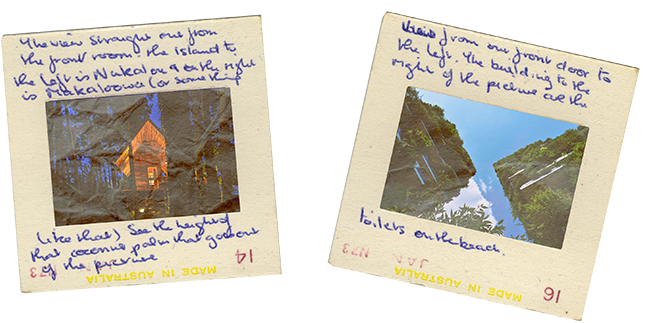 The view straight out from
the front room. the island to
the left is Nukalou & on the right
is Makaloowa (or something
like that) See the height of
that coconut palm that goes out
of the picture
14
N73
MADE IN AUSTRALIA
View from our front door to
the left. The building to the
right of the picture are the
toilets on the beach.
JAN N73
16
MADE IN AUSTRALIA